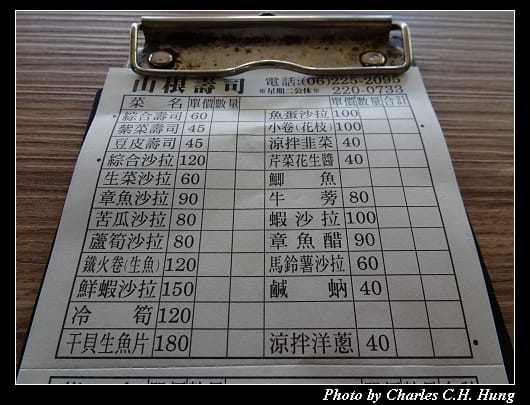 山根壽司 電話:(06)225-2095
※星期二公休※ 220-0733
菜 名 單價 數量 單價 數量 合計
綜合壽司 60 魚蛋沙拉 100
紫菜壽司 45 小卷(花枝) 100
豆皮壽司 45 涼拌韭菜 40
綜合沙拉 120 芹菜花生醬 40
生菜沙拉 60 鯽 魚
章魚沙拉 90 牛 蒡 80
苦瓜沙拉 80 蝦沙拉 100
蘆筍沙拉 80 章魚醋 90
鐵火卷(生魚) 120 馬鈴薯沙拉 60
鮮蝦沙拉 150 鹹 蚋 40
冷 筍 120
干貝生魚片 180 涼拌洋蔥 40
Photo by Charles C.H. Hung